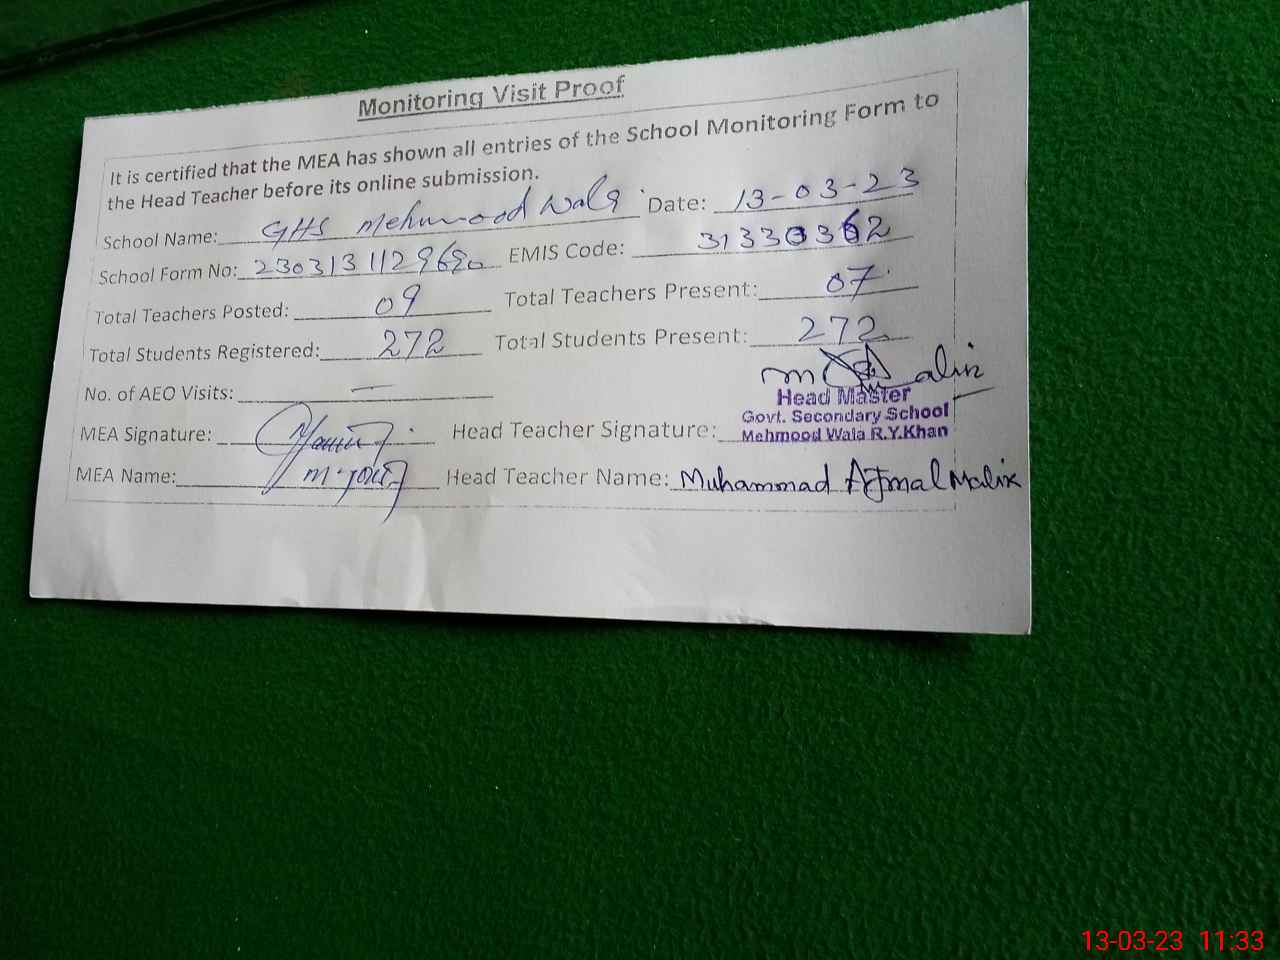 Monitoring Visit Proof
It is certified that the MEA has shown all entries of the School Monitoring Form to
the Head Teacher before its online submission.
School Name: GHS Mehmood Wala Date: 13-03-23
School Form No: EMIS Code: 31330362
Total Teachers Posted: 09 Total Teachers Present: 07
Total Students Registered: 272 Total Students Present: 272
No. of AEO Visits: —
Head Master
Govt. Secondary School
MEA Signature: Head Teacher Signature:
Mehmood Wala R.Y.Khan
MEA Name: Head Teacher Name: Muhammad Ajmal Malik
13-03-23 11:33